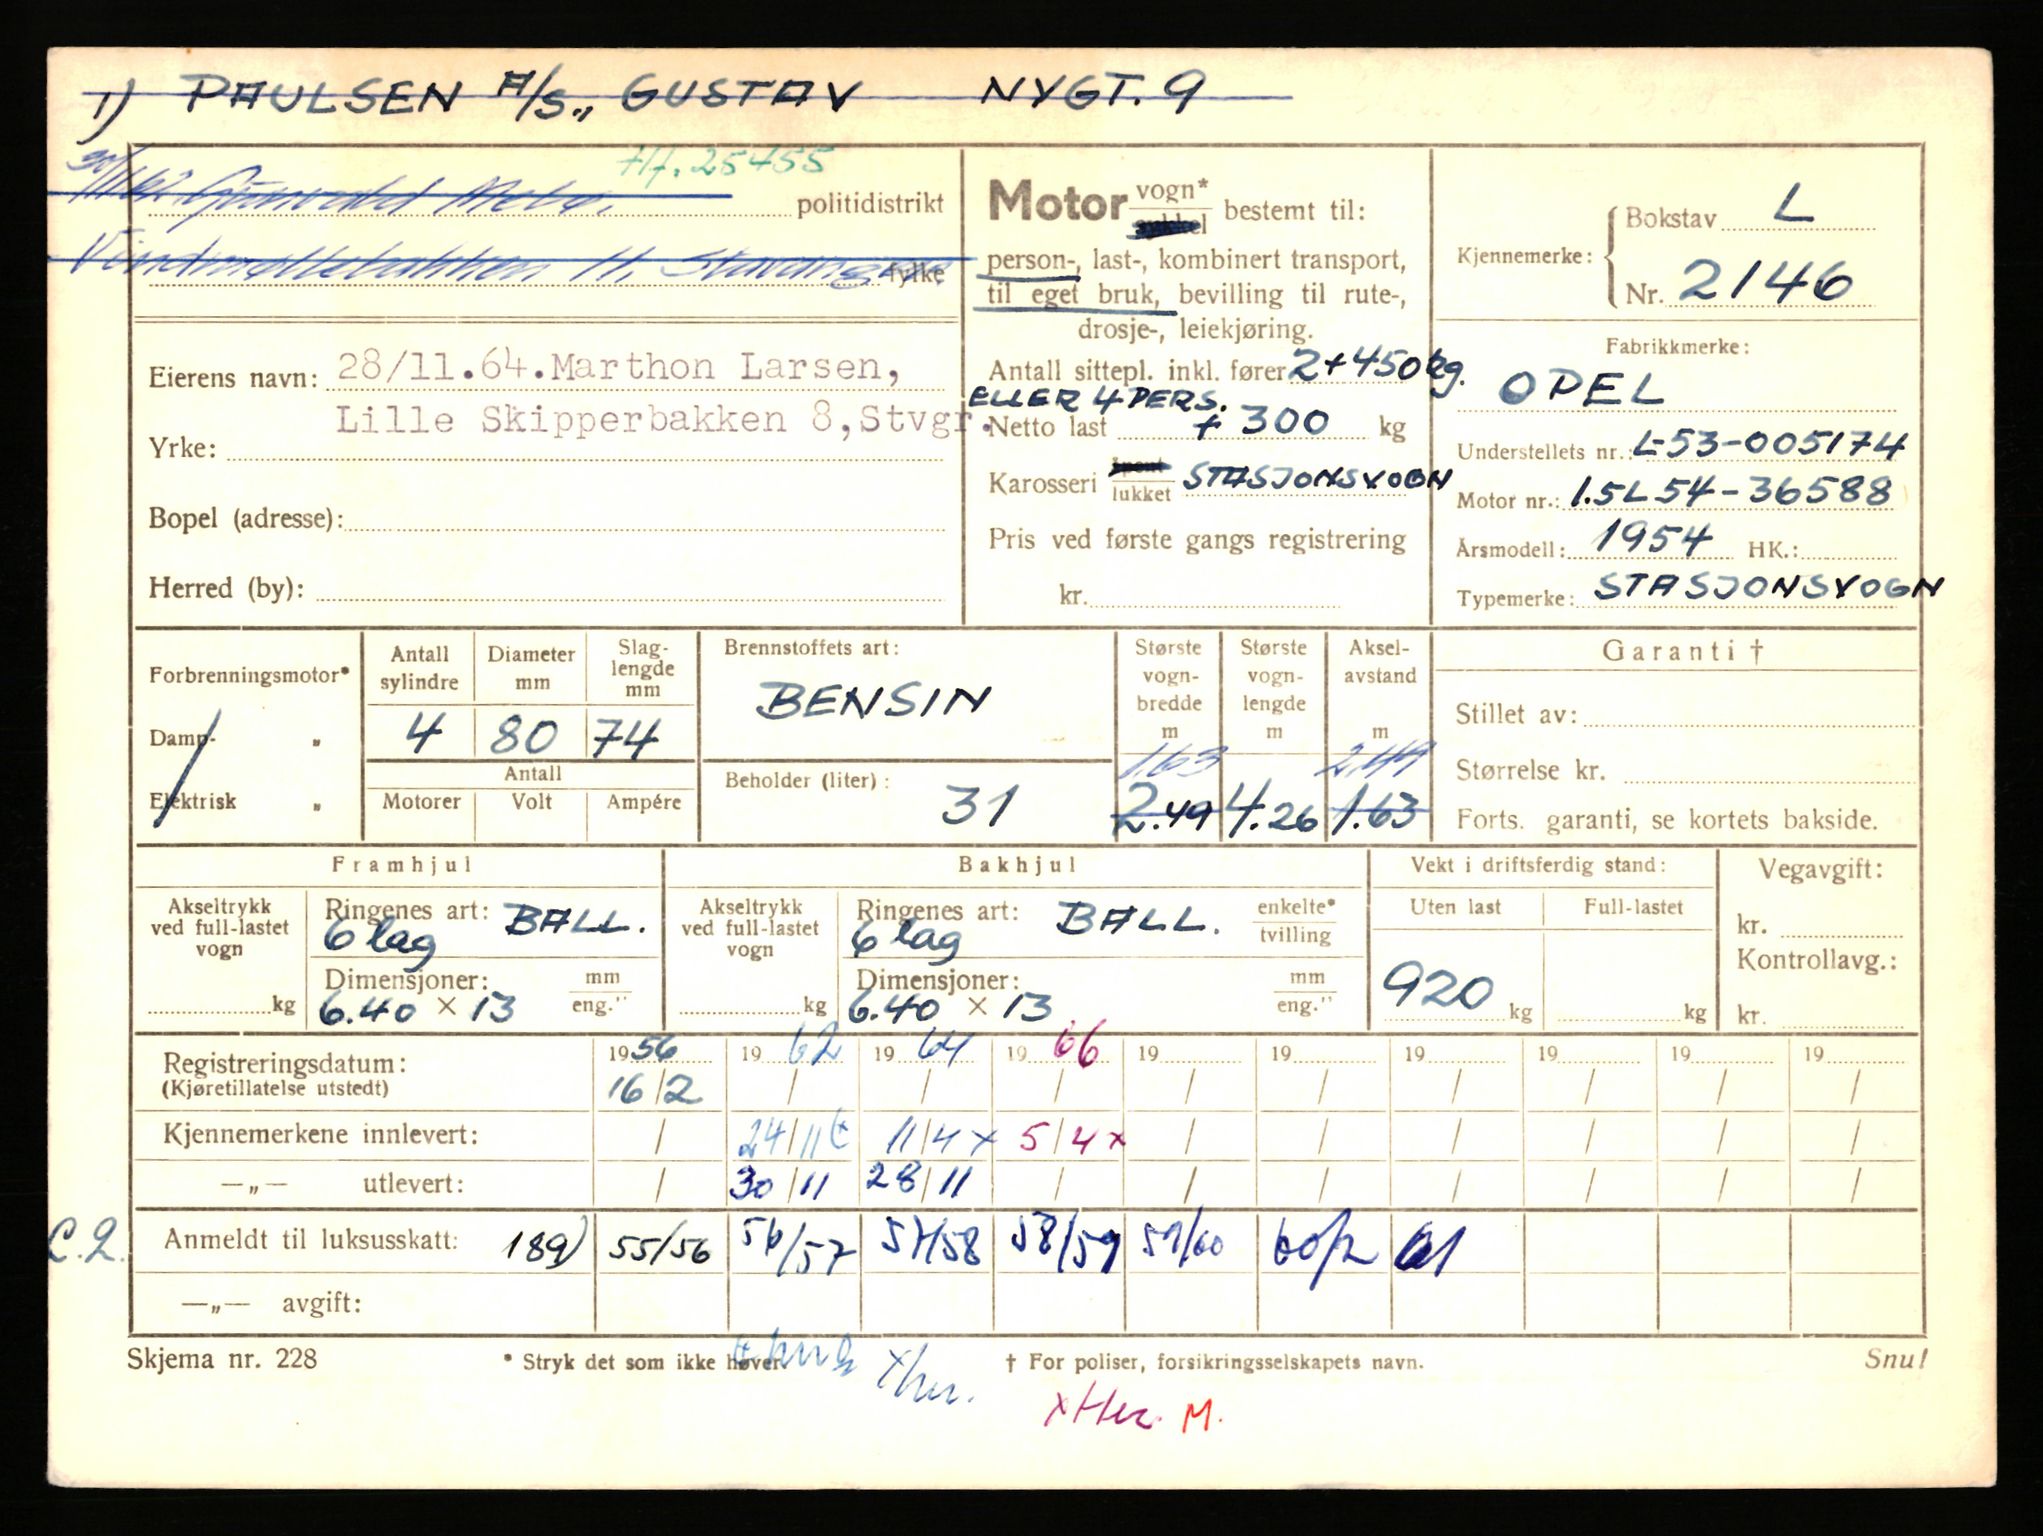 1) PAULSEN A/S., GUSTAV NYGT. 9
30/11.62
tlf. 25455
politidistrikt
Vindmøllebakken 11, Stavanger
fylke
Eierens navn: 28/11.64. Marthon Larsen,
Lille Skipperbakken 8, Stvgr.
Yrke:
Bopel (adresse):
Herred (by):
Motor vogn* bestemt til:
person-, last-, kombinert transport,
til eget bruk, bevilling til rute-,
drosje-, leiekjøring.
Antall sittepl. inkl. fører 2+450kg.
ELLER 4 PERS.
Netto last + 300 kg
Karosseri lukket STASJONSVOGN
Pris ved første gangs registrering
kr.
Kjennemerke: Bokstav L
Nr. 2146
Fabrikkmerke:
OPEL
Understellets nr.: L-53-005174
Motor nr.: 1.5L54-36588
Årsmodell: 1954 HK.:
Typemerke: STASJONSVOGN
Forbrenningsmotor*
Damp- „
Elektrisk „
Antall sylindre
Diameter mm
Slag-lengde mm
4 80 74
Antall
Motorer Volt Ampére
Brennstoffets art:
BENSIN
Beholder (liter): 31
Største vogn-bredde m
Største vogn-lengde m
Aksel-avstand m
1.63 2.49
2.49 4.26 1.63
Garanti †
Stillet av:
Størrelse kr.
Forts. garanti, se kortets bakside.
Framhjul
Akseltrykk ved full-lastet vogn
kg
Ringenes art: BALL.
6 lag
Dimensjoner: mm
6.40 × 13 eng."
Bakhjul
Akseltrykk ved full-lastet vogn
kg
Ringenes art: BALL. enkelte*
6 lag tvilling
Dimensjoner: mm
6.40 × 13 eng."
Vekt i driftsferdig stand:
Uten last Full-lastet
920 kg kg
Vegavgift:
kr.
Kontrollavg.:
kr.
Registreringsdatum: 1956 1962 1964 1966 19 19 19 19 19 19
(Kjøretillatelse utstedt) 16/2 / / / / / / / / /
Kjennemerkene innlevert: / 24/11 11/4 x 5/4 x / / / / / /
—„— utlevert: / 30/11 28/11 / / / / / / /
C.2. Anmeldt til luksusskatt: 189) 55/56 56/57 57/58 58/59 59/60 60/2 61
—„— avgift:
Skjema nr. 228
* Stryk det som ikke høver.
† For poliser, forsikringsselskapets navn.
Snu!
M.